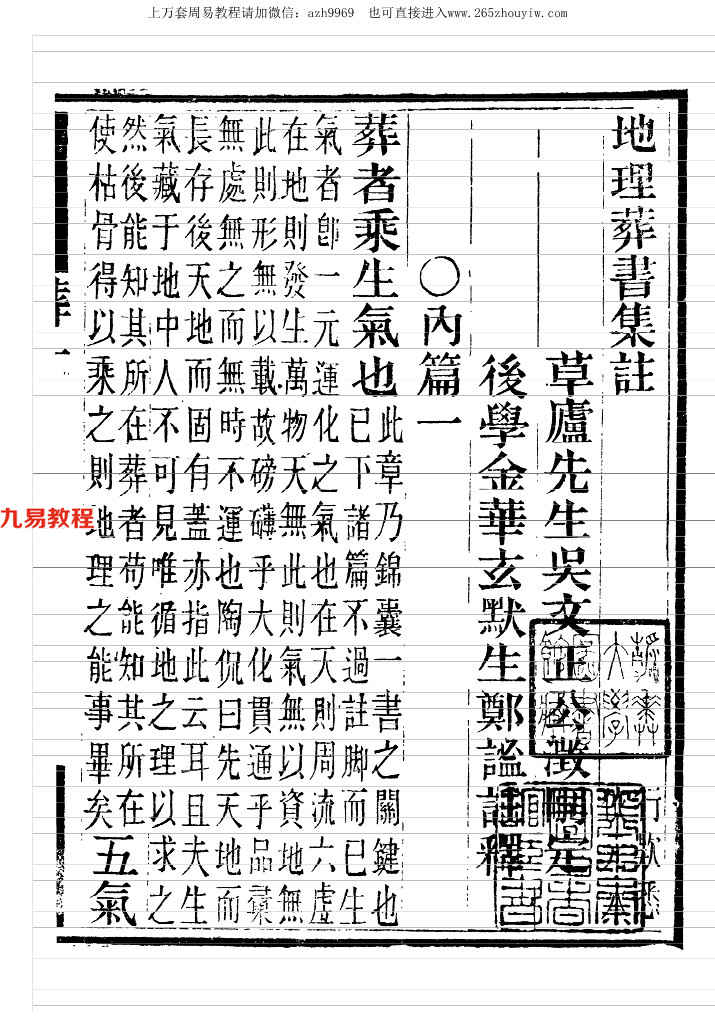 上万套周易教程请加微信：azh9969 也可直接进入www.265zhouyiw.com
地理葬書集註
草廬先生吳文正公澂刪定
後學金華玄默生鄭謐註釋
〇內篇一
葬者乘生氣也此章乃錦囊一書之關鍵也
已下諸篇不過註脚而已生
氣者卽一元運化之氣也在天則周流六虛
在地則發生萬物天無此則氣無以資地無
此則形無以載故磅礴乎大化貫通乎品彙
無處無之而無時不運也陶侃曰先天地而
長存後天地而固有蓋亦指此云耳且夫生
氣藏于地中人不可見唯循地之理以求之
然後能知其所在葬者苟能知其所在
使枯骨得以乘之則地理之能事畢矣五氣
九易教程